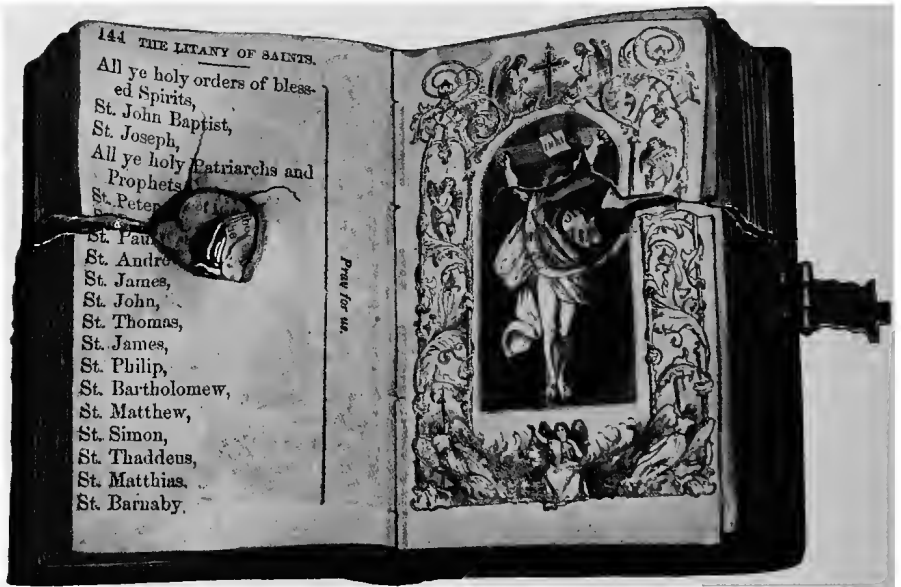 144 THE LITANY OF SAINTS.
All ye holy orders of bless-
ed Spirits,
St. John Baptist,
St. Joseph,
All ye holy Patriarchs and
Prophets
St. Peter
St. Paul
St. Andre
St. James,
St. John,
St. Thomas,
St. James,
St. Philip,
St. Bartholomew,
St. Matthew,
St. Simon,
St. Thaddeus,
St. Matthias,
St. Barnaby,
Pray for us.